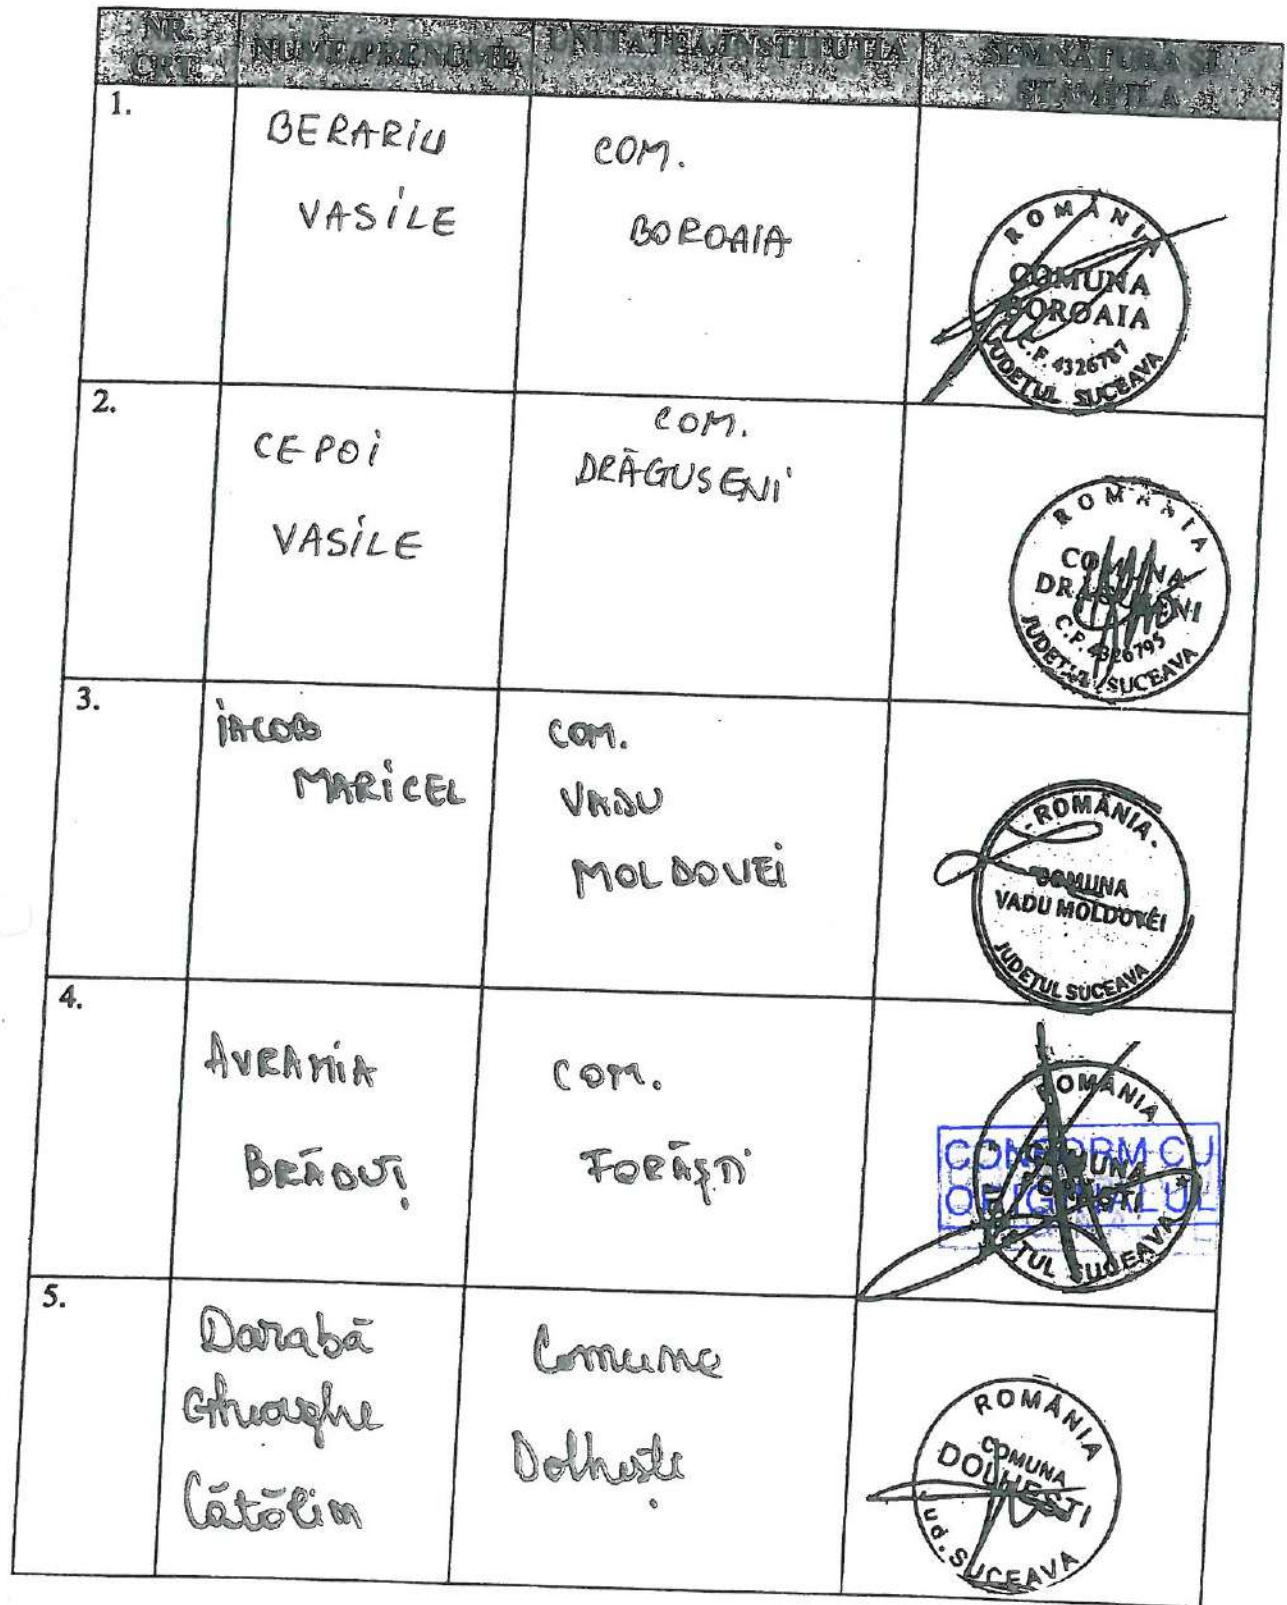 NR. CRT.
NUME/PRENUME
UNITATEA/INSTITUTIA
SEMNĂTURA SI STAMPILA
1.
BERARIU
VASILE
COM.
BOROAIA
ROMÂNIA
COMUNA
BOROAIA
C.F. 4326787
JUDETUL SUCEAVA
2.
CEPOI
VASILE
COM.
DRĂGUSENI
ROMANIA
COMUNA
C.F. 4326795
JUDETUL SUCEAVA
3.
IACOB
MARICEL
COM.
VADU
MOLDOVEI
-ROMÂNIA-
COMUNA
VADU MOLDOVEI
JUDEȚUL SUCEAVA
4.
AVRAMIA
BRĂDUȚ
COM.
FORĂȘTI
ROMÂNIA
COMUNA
SUCEAVA
CONFORM CU
ORIGINALUL
5.
Darabă
Gheorghe
Cătălin
Comuna
Dolhești
ROMÂNIA
COMUNA
DOLHESTI
Jud. SUCEAVA